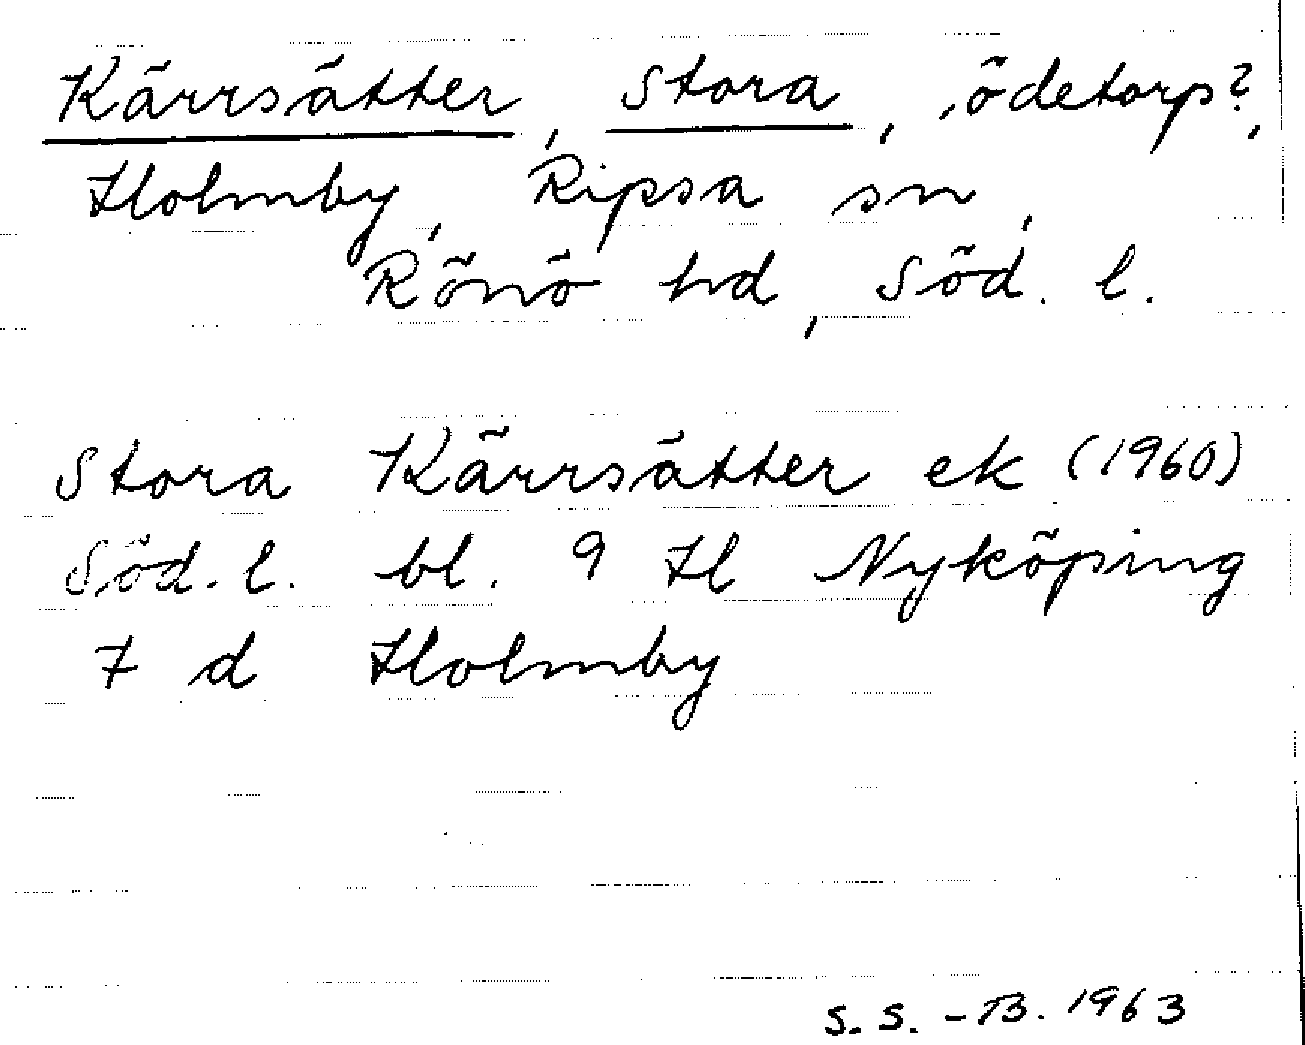 Kärrsätter, Stora, ödetorp?,
Holmby, Ripsa sn,
Rönö hd, Söd. l.
Stora Kärrsätter ek (1960)
Söd. l. bl. 9 H Nyköping
7 d Holmby
S. S. - B. 1963